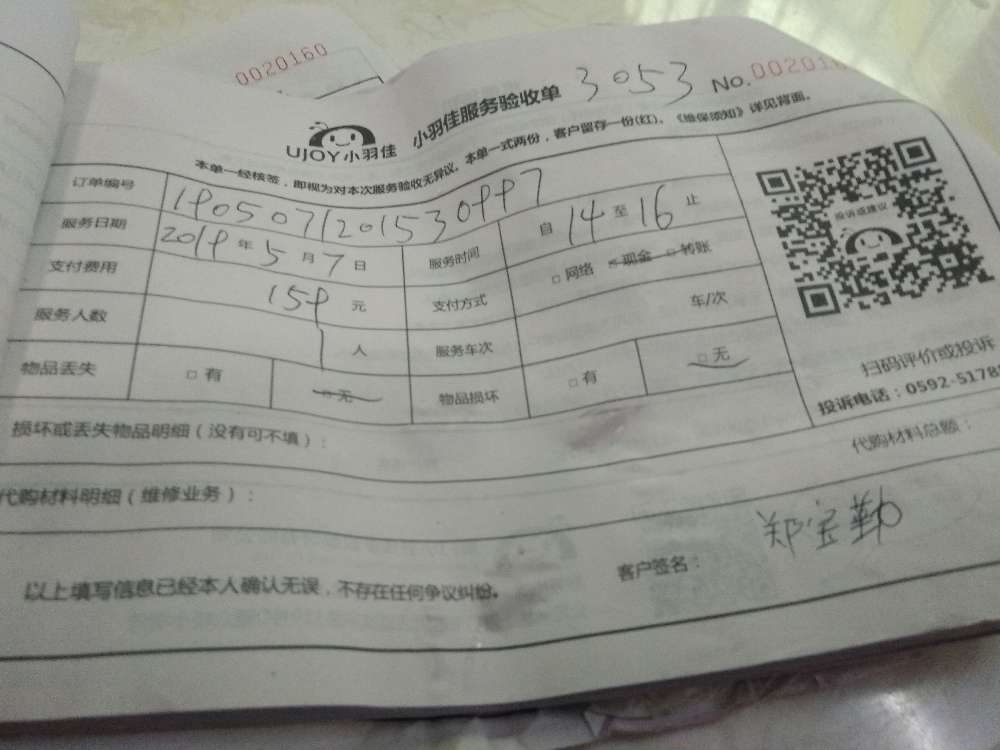 0020160
小羽佳服务验收单 3053 No.
UJOY小羽佳
本单一经核签，即视为对本次服务验收无异议。本单一式两份，客户留存一份(红)。《维保须知》详见背面。
订单编号 190507120153 0997
服务日期 2019年5月7日 服务时间 自14至16止
支付费用 159元 支付方式 □网络 □现金 □转账
服务人数 1人 服务车次 车/次
物品丢失 □有 □无 物品损坏 □有 □无
投诉或建议
扫码评价或投诉
投诉电话：0592-5178
损坏或丢失物品明细（没有可不填）：
代购材料明细（维修业务）： 代购材料总额：
以上填写信息已经本人确认无误，不存在任何争议纠纷。 客户签名： 郑宝勤